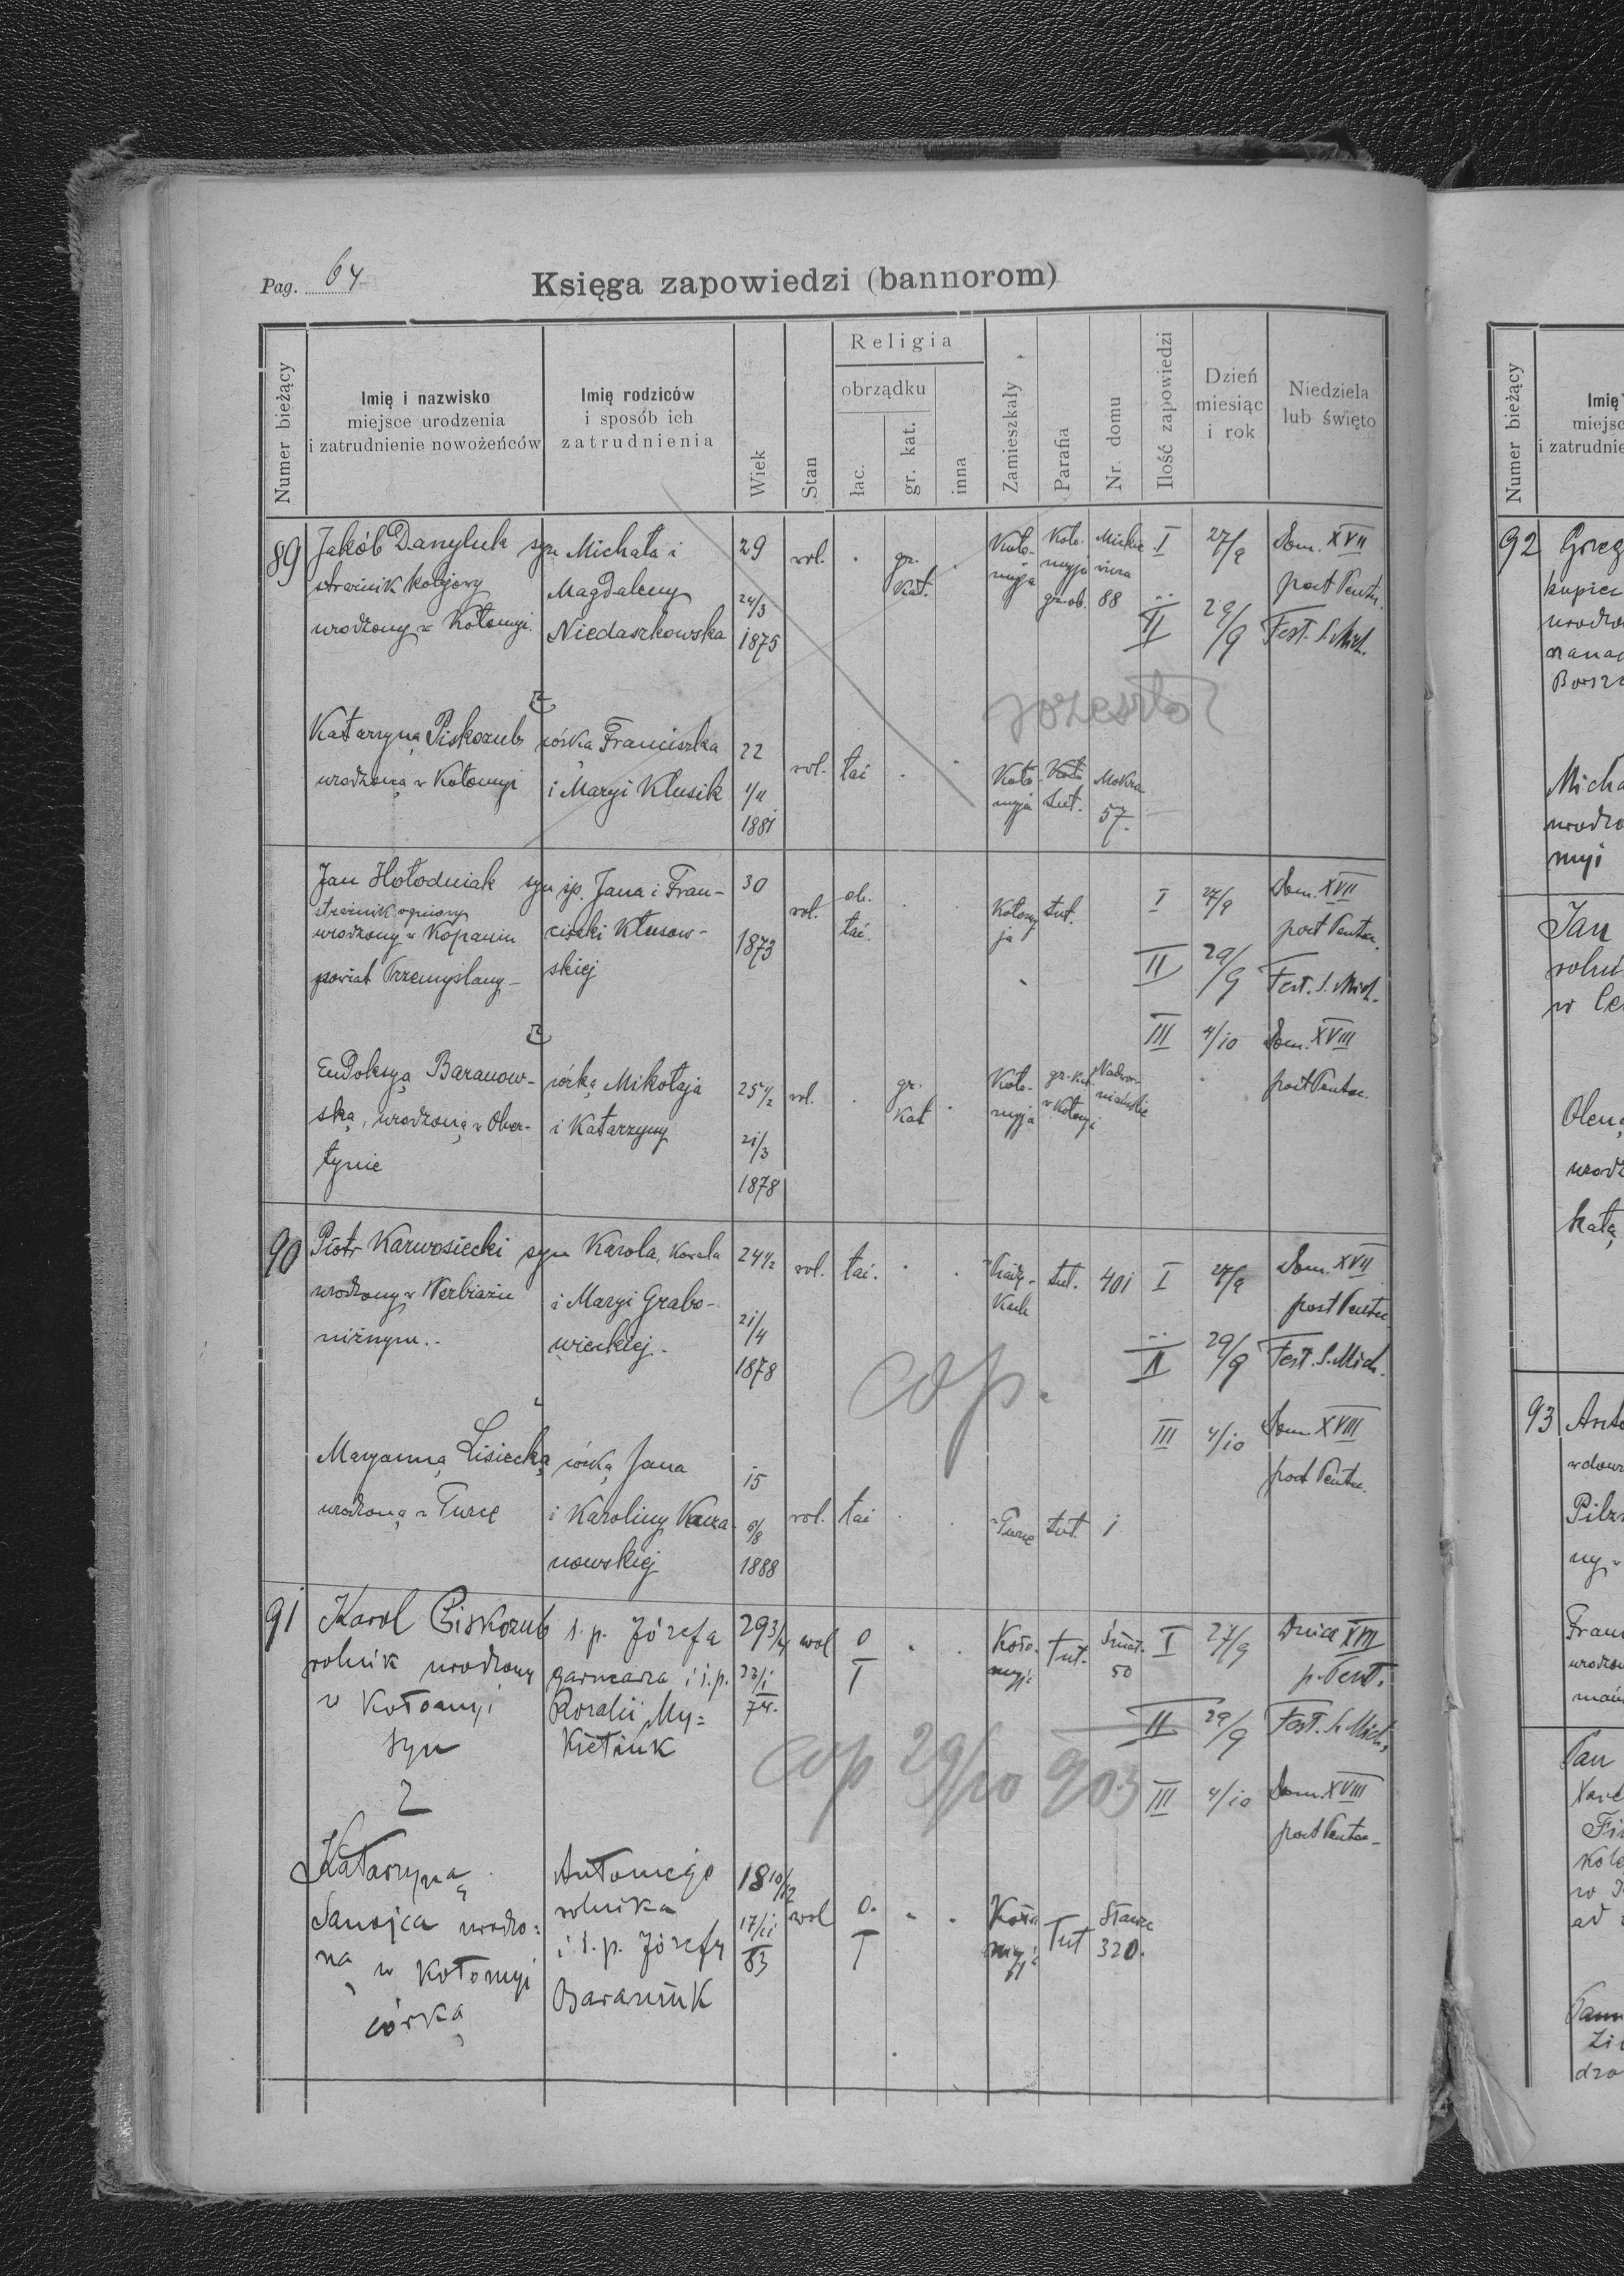 Pag. 64
Księga zapowiedzi (bannorom)
Numer bieżący
Imię i nazwisko
miejsce urodzenia
i zatrudnienie nowożeńców
Imię rodziców
i sposób ich
zatrudnienia
Wiek
Stan
Religia
obrządku
łac.
gr. kat.
inna
Zamieszkały
Parafia
Nr. domu
Ilość zapowiedzi
Dzień
miesiąc
i rok
Niedziela
lub święto
89
Jakób Danyluk syn
strażnik kolejowy
urodzony w Kołomyi.
Michała i
Magdaleny
Niedaszkowska
29
24/3
1875
wol. . gr. .
kat.
Koło-
myja
Koło-
myja
gr. ob.
Mickie
wicza
88
I 27/9 Dom. XVII
post Pentec.
II 29/9 Fest. S. Mich.
Z
Katarzyną Piskozub
urodzoną w Kołomyi
córką Franciszka
i Maryi Klusik
22
1/11
1881
wol. łać . .
Koło
myja
Koło
tut.
Mokra
57.
Jan Hołodniak syn
strażnik ogniowy
urodzony w Kopaniu
powiat Przemyślany
śp. Jana i Fran-
ciszki Kłusow-
skiej
30
1873
wol. ob. . .
łać.
Kołomy
ja
tut.
I 27/9 Dom. XVII
post Pentec.
II 29/9 Fest. S. Mich.
III 4/10 Dom. XVIII
post Pentec.
Z
Eudoksyą Baranow-
ską, urodzoną w Ober-
tynie
córką Mikołaja
i Katarzyny
25 1/2
21/3
1878
wol. . gr. .
kat
Koło-
myja
gr. kat.
w Kołomyi
Nadwor-
niańskie
90
Piotr Karwosiecki syn
urodzony w Werbiażu
niżnym.
Karola, Kowala
i Maryi Grabo-
wieckiej.
24 1/2
21/4
1878
wol. łać. . .
tut. 401
I 27/9 Dom. XVII
post Pentec
II 29/9 Fest. S. Mich.
III 4/10 Dom. XVIII
post Pentec.
cop.
z
Maryanną Lisiecką
urodzoną w Turce
córką Jana
i Karoliny
nowskiej
15
9/8
1888
wol. łać . .
w Turce tut. 1
91
Karol Piskozub
rolnik urodzony
w Kołomyi
syn
ś. p. Józefa
garncarza i ś. p.
Rozalii My=
kietiuk
29 3/4
23/1
74.
wol o . .
ł
Koło
myja
tut. 50
I 27/9 Dnica XVII
p. Pent.
II 29/9 Fest. S. Mich.
III 4/10 Dom. XVIII
post Pentec.
cop 29/10 903
Z
Katarzyną
Sanojca urodzo=
ną w Kołomyi
córką
Antoniego
rolnika
i ś. p. Józefy
Baraniuk
18 10/12
17/11
83
wol o. . .
ł
Koło
myja
Tut 320.
92
kupiec
Jan
93